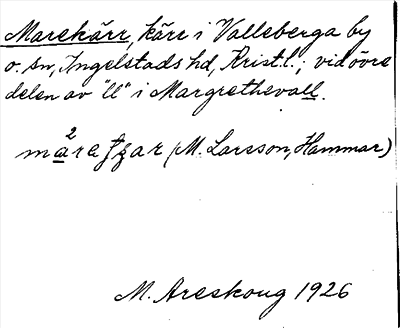 Marekärr, kärr i Valleberga by
o. sn, Ingelstads hd, Krist.l.; vid övre
delen av "ll" i Margrethevall.
(M. Larsson, Hammar)
M. Areskoug 1926